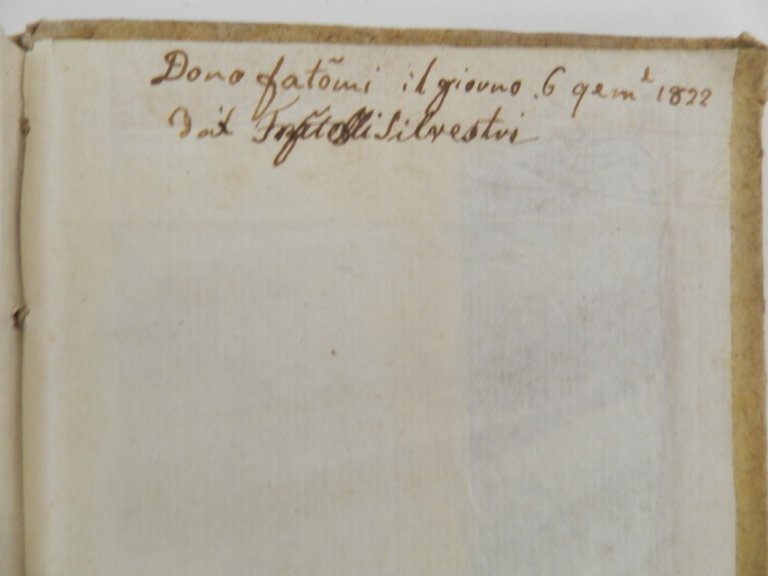 Dono fatõmi il giorno 6 gem.e 1822
dai Fratelli Silvestri